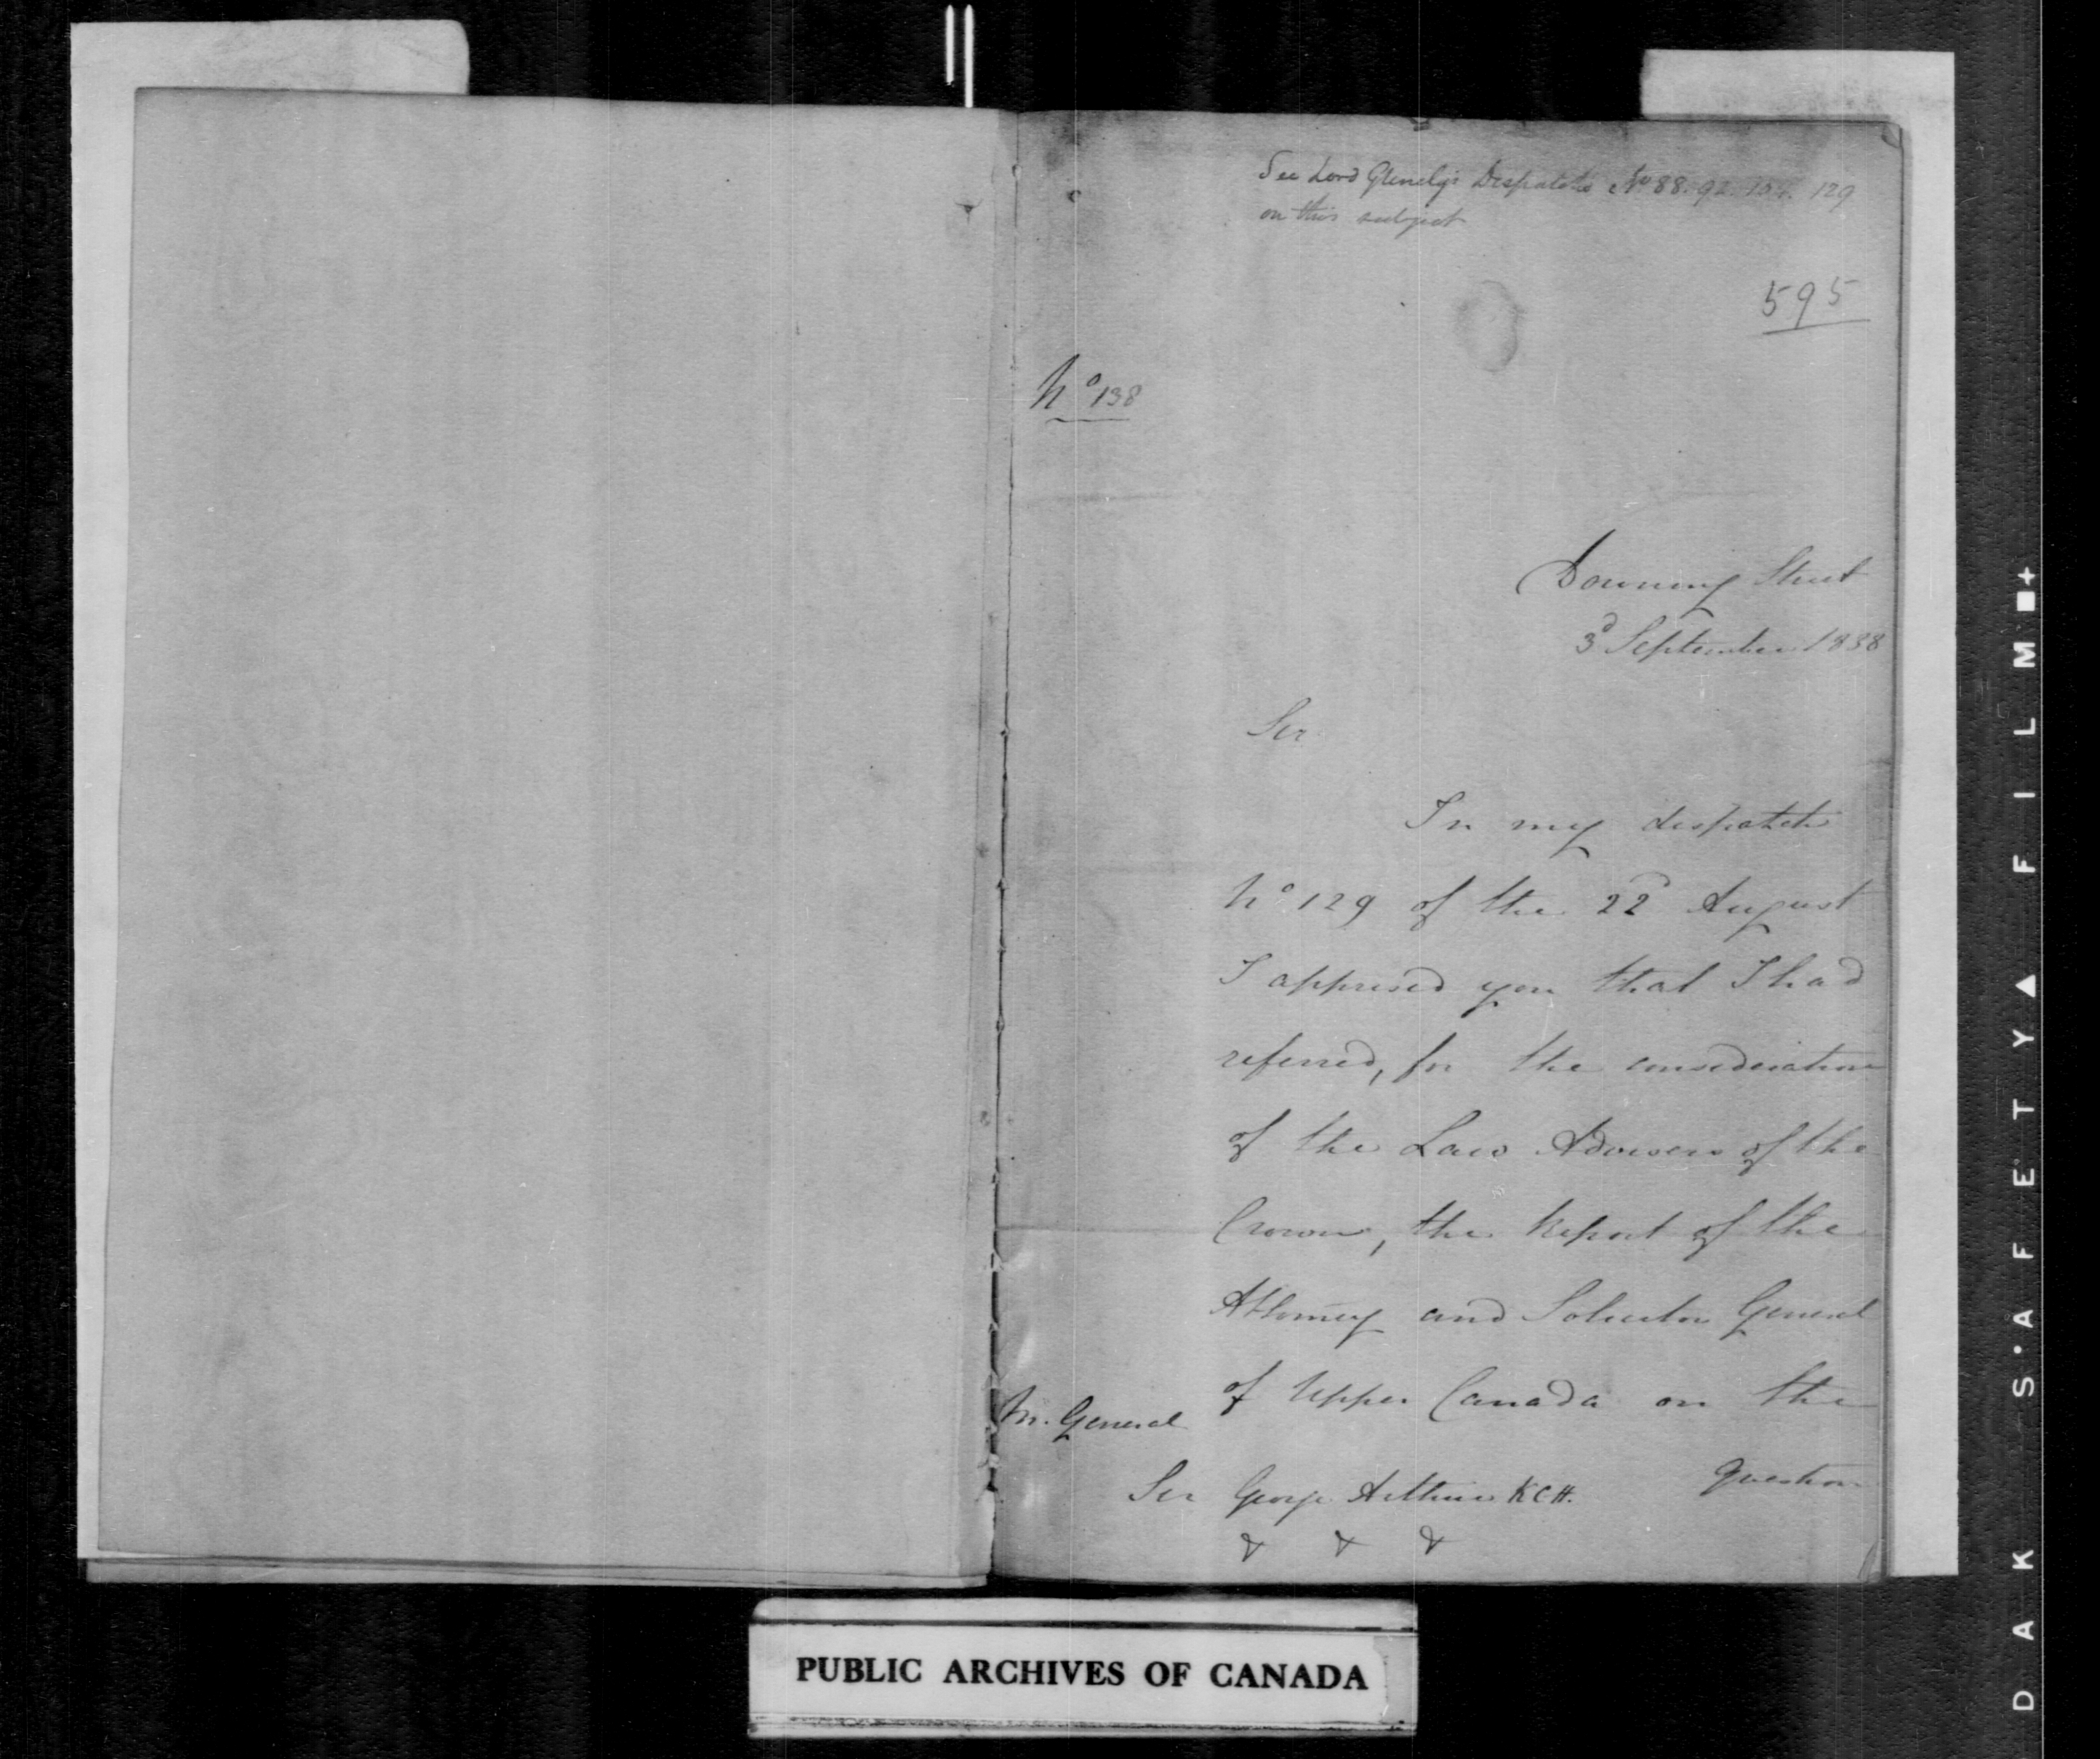 See Lord Glenelg's Despatch No 88. 92. 129
on this subject
595
No 138
Downing Street
3d September 1838
Sir
In my despatch
No 129 of the 22d August
I apprised you that I had
referred, for the consideration
of the Law Advisers of the
Crown, the Report of the
Attorney and Solicitor General
of Upper Canada on the
question
M. General
Sir George Arthur KCH.
& & &
PUBLIC ARCHIVES OF CANADA
DAK S·AFETY▲FILM■+